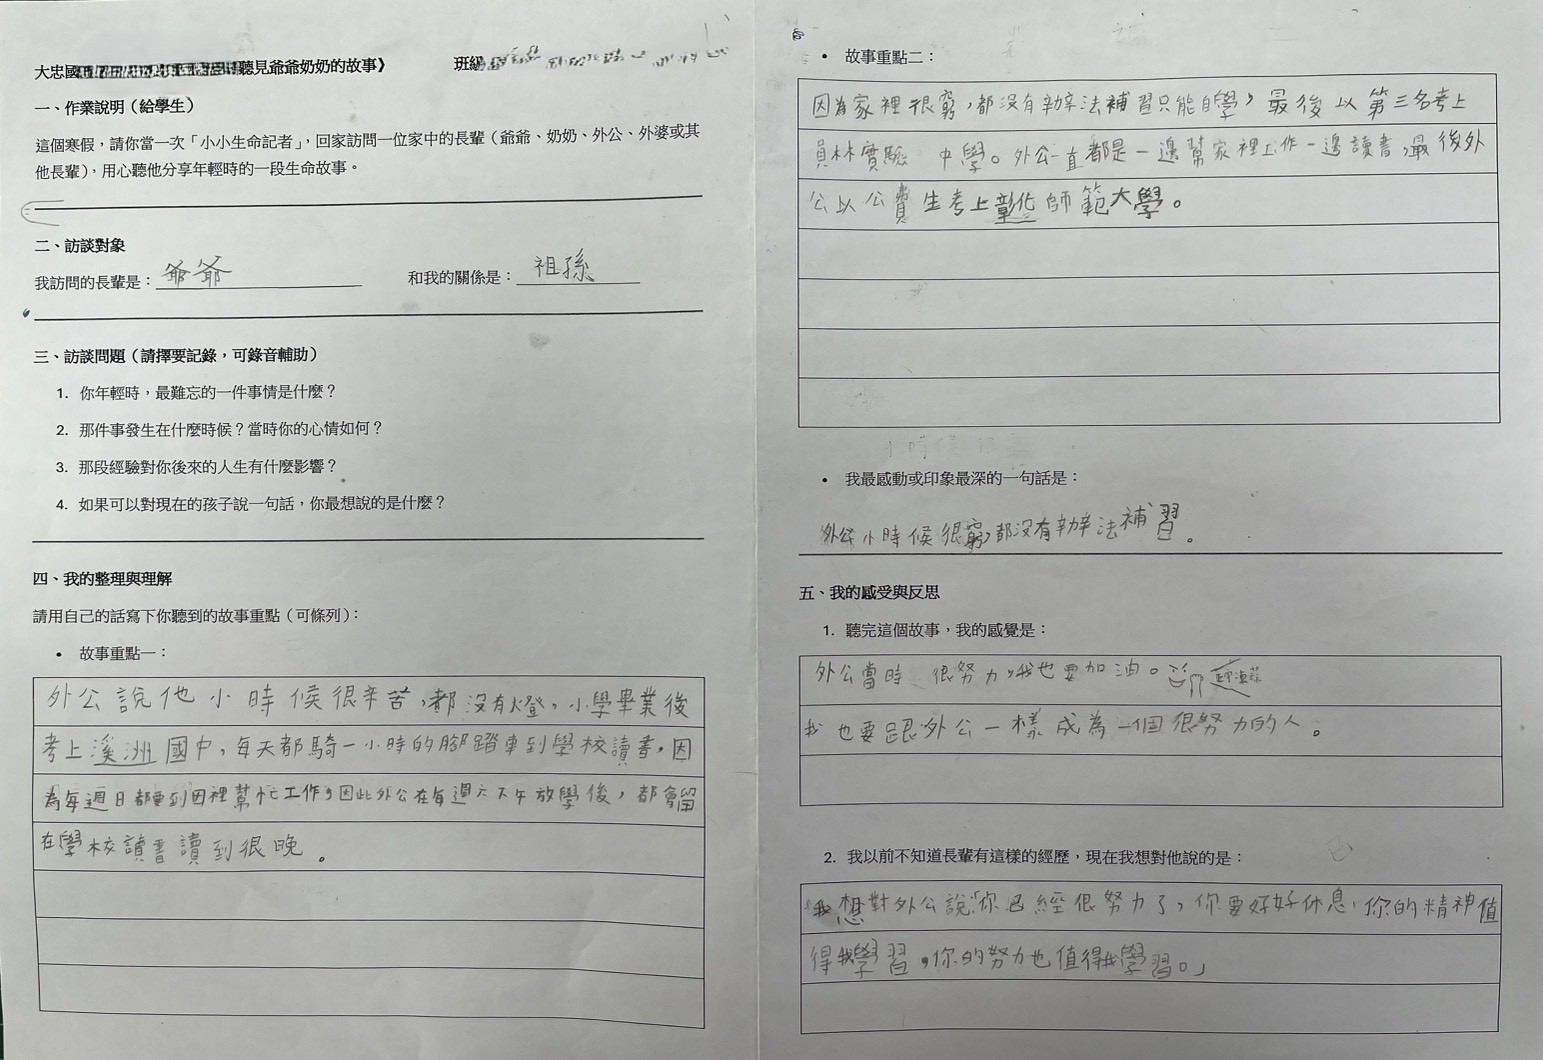 大忠國
聽見爺爺奶奶的故事》 班級
一、作業說明（給學生）
這個寒假，請你當一次「小小生命記者」，回家訪問一位家中的長輩（爺爺、奶奶、外公、外婆或其
他長輩），用心聽他分享年輕時的一段生命故事。
二、訪談對象
我訪問的長輩是：爺爺 和我的關係是：祖孫
三、訪談問題（請擇要記錄，可錄音輔助）
1. 你年輕時，最難忘的一件事情是什麼？
2. 那件事發生在什麼時候？當時你的心情如何？
3. 那段經驗對你後來的人生有什麼影響？
4. 如果可以對現在的孩子說一句話，你最想說的是什麼？
四、我的整理與理解
請用自己的話寫下你聽到的故事重點（可條列）：
• 故事重點一：
外公說他小時候很辛苦，都沒有燈，小學畢業後
考上溪洲國中，每天都騎一小時的腳踏車到學校讀書，因
為每週日都要到田裡幫忙工作，因此外公在每週六下午放學後，都會留
在學校讀書讀到很晚。
• 故事重點二：
因為家裡很窮，都沒有辦法補習只能自學，最後以第三名考上
員林實驗中學。外公一直都是一邊幫家裡工作一邊讀書，最後外
公以公費生考上彰化師範大學。
• 我最感動或印象最深的一句話是：
外公小時候很窮，都沒有辦法補習。
五、我的感受與反思
1. 聽完這個故事，我的感覺是：
外公當時很努力，我也要加油。
我也要跟外公一樣成為一個很努力的人。
2. 我以前不知道長輩有這樣的經歷，現在我想對他說的是：
我想對外公說「你已經很努力了，你要好好休息，你的精神值
得我學習，你的努力也值得我學習。」